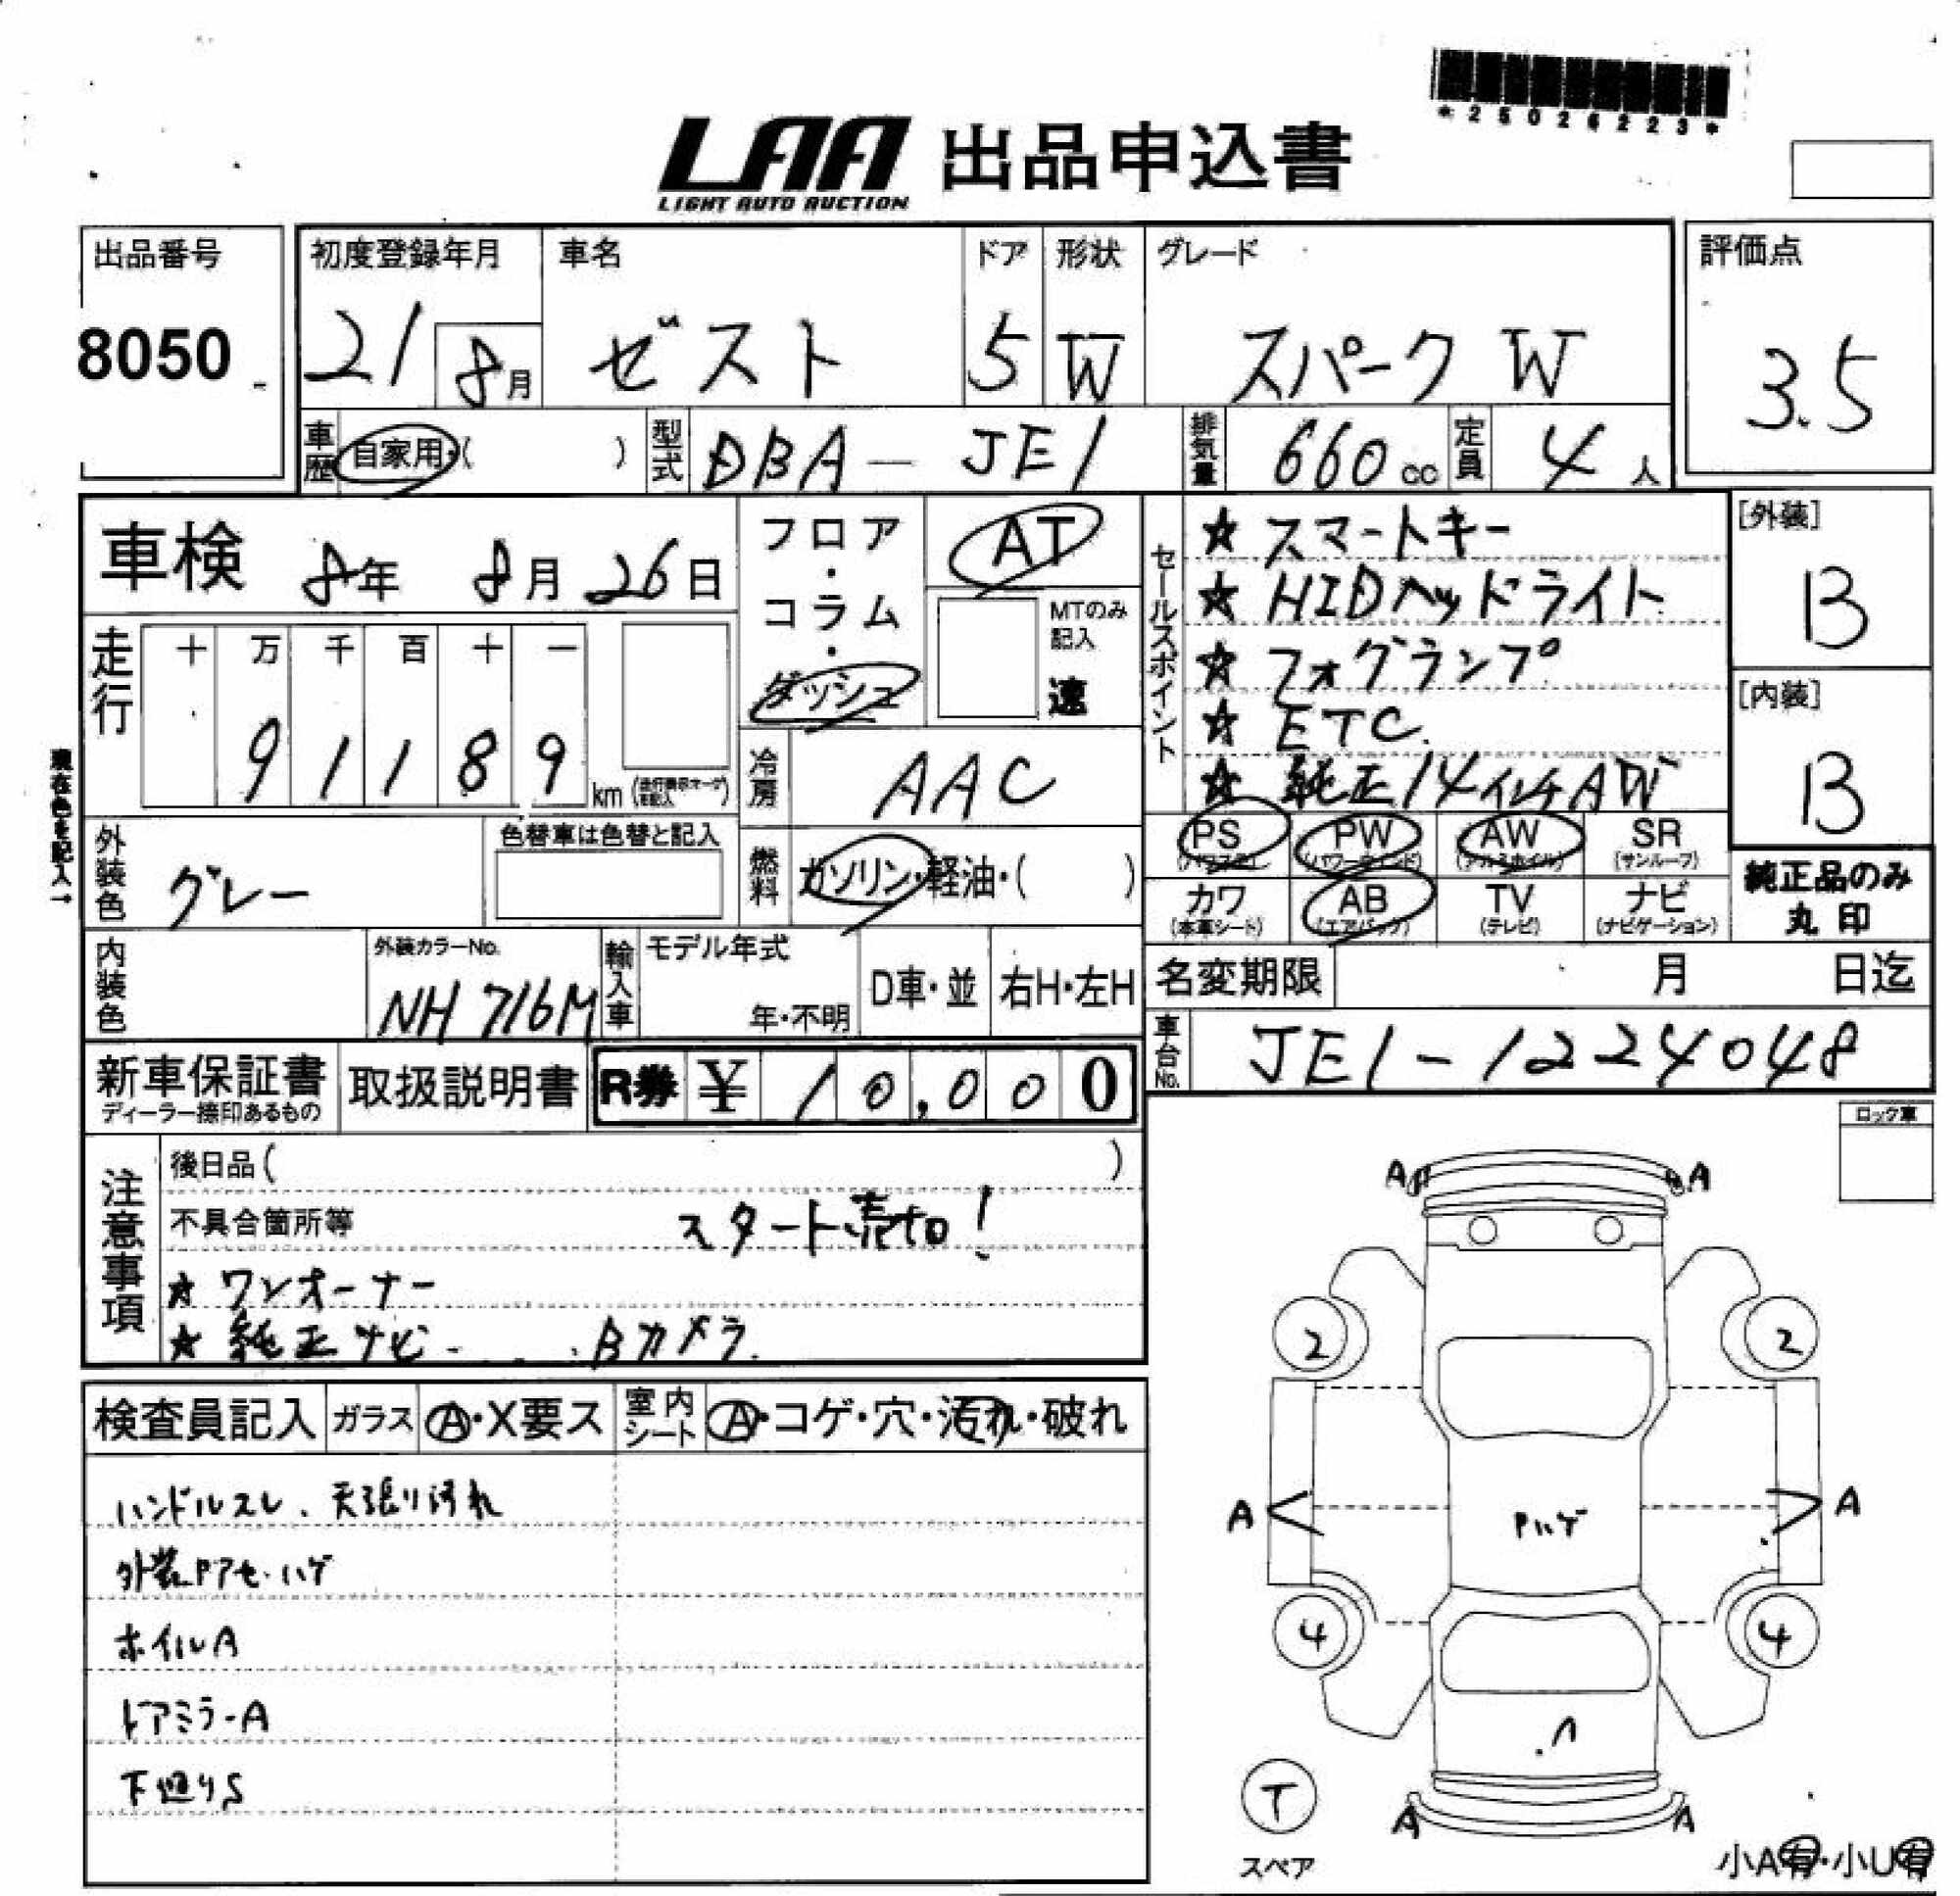 *25026223*
LAA 出品申込書
LIGHT AUTO AUCTION
出品番号 8050
初度登録年月 21 8月
車名 ゼスト
ドア 5
形状 W
グレード スパーク W
評価点 3.5
車歴 自家用・( )
型式 DBA-JE1
排気量 660cc
定員 4人
車検 8年 8月 26日
フロア・コラム・ダッシュ
AT
MTのみ記入 速
セールスポイント
☆ スマートキー
☆ HIDヘッドライト
☆ フォグランプ
☆ ETC
☆ 純正14インチAW
[外装] B
[内装] B
走行 十 万 千 百 十 一
9 1 1 8 9 km
冷房 AAC
現在色を記入→
外装色 グレー
色替車は色替と記入
燃料 ガソリン・軽油・( )
PS (パワステ)
PW (パワーウインド)
AW (アルミホイル)
SR (サンルーフ)
カワ (本革シート)
AB (エアバック)
TV (テレビ)
ナビ (ナビゲーション)
純正品のみ
丸印
内装色
外装カラーNo. NH716M
輸入車 モデル年式 年・不明
D車・並
右H・左H
名変期限 月 日迄
車台No. JE1-1224048
新車保証書
ディーラー捺印あるもの
取扱説明書
R券 ¥10,000
ロック車
注意事項
後日品( )
不具合箇所等 スタート売切!
☆ ワンオーナー
☆ 純正ナビ Bカメラ
検査員記入
ガラス A・X要ス
室内シート A・コゲ・穴・汚れ・破れ
ハンドルスレ、天張り汚れ
外装Pアセ・ハゲ
ホイルA
ドアミラーA
下廻りS
A A
2 2
A Pハゲ A
4 4
T
スペア
A A
小A有・小U有